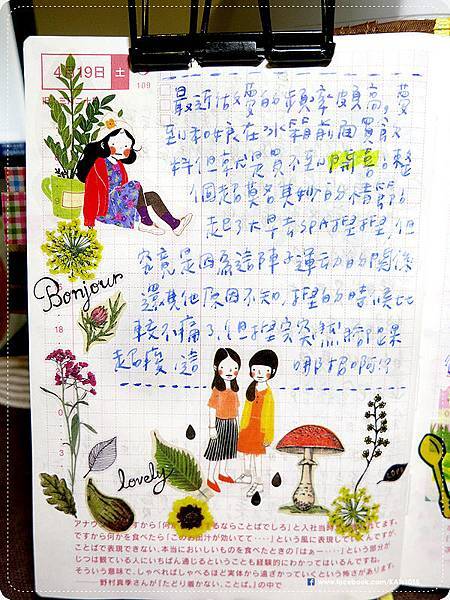 4月19日 土
109
最近做夢的頻率頗高,夢
到和娘在冰箱前面買飲
料但就是買不到開喜;整
個超莫名其妙的情節
起了大早去SPA捏捏,但
究竟是因為這陣子運動的關係
還其他原因不知,捏的時候比
較不痛了,但捏完突然
起 這 哪招啊!?
Bonjour
18
0
3
lovely
アナウ すから「何か るならことばでしろ」と入社当時 れてます。
ですから何かを食べたら「このお出汁が効いてて‥‥」という風に表現していくんですが、
ことばで表現できない、本当においしいものを食べたときの「はぁー‥‥」という部分が
じつは観ている人にいちばん通じるということも経験的にわかってはいるんですね。
そういう意味で、しゃべればしゃべるほど実体から遠ざかっていくという怖さがあります。
野村真季さんが『たどり着かない、ことば。』の中で
www.facebook.com/KAI1016